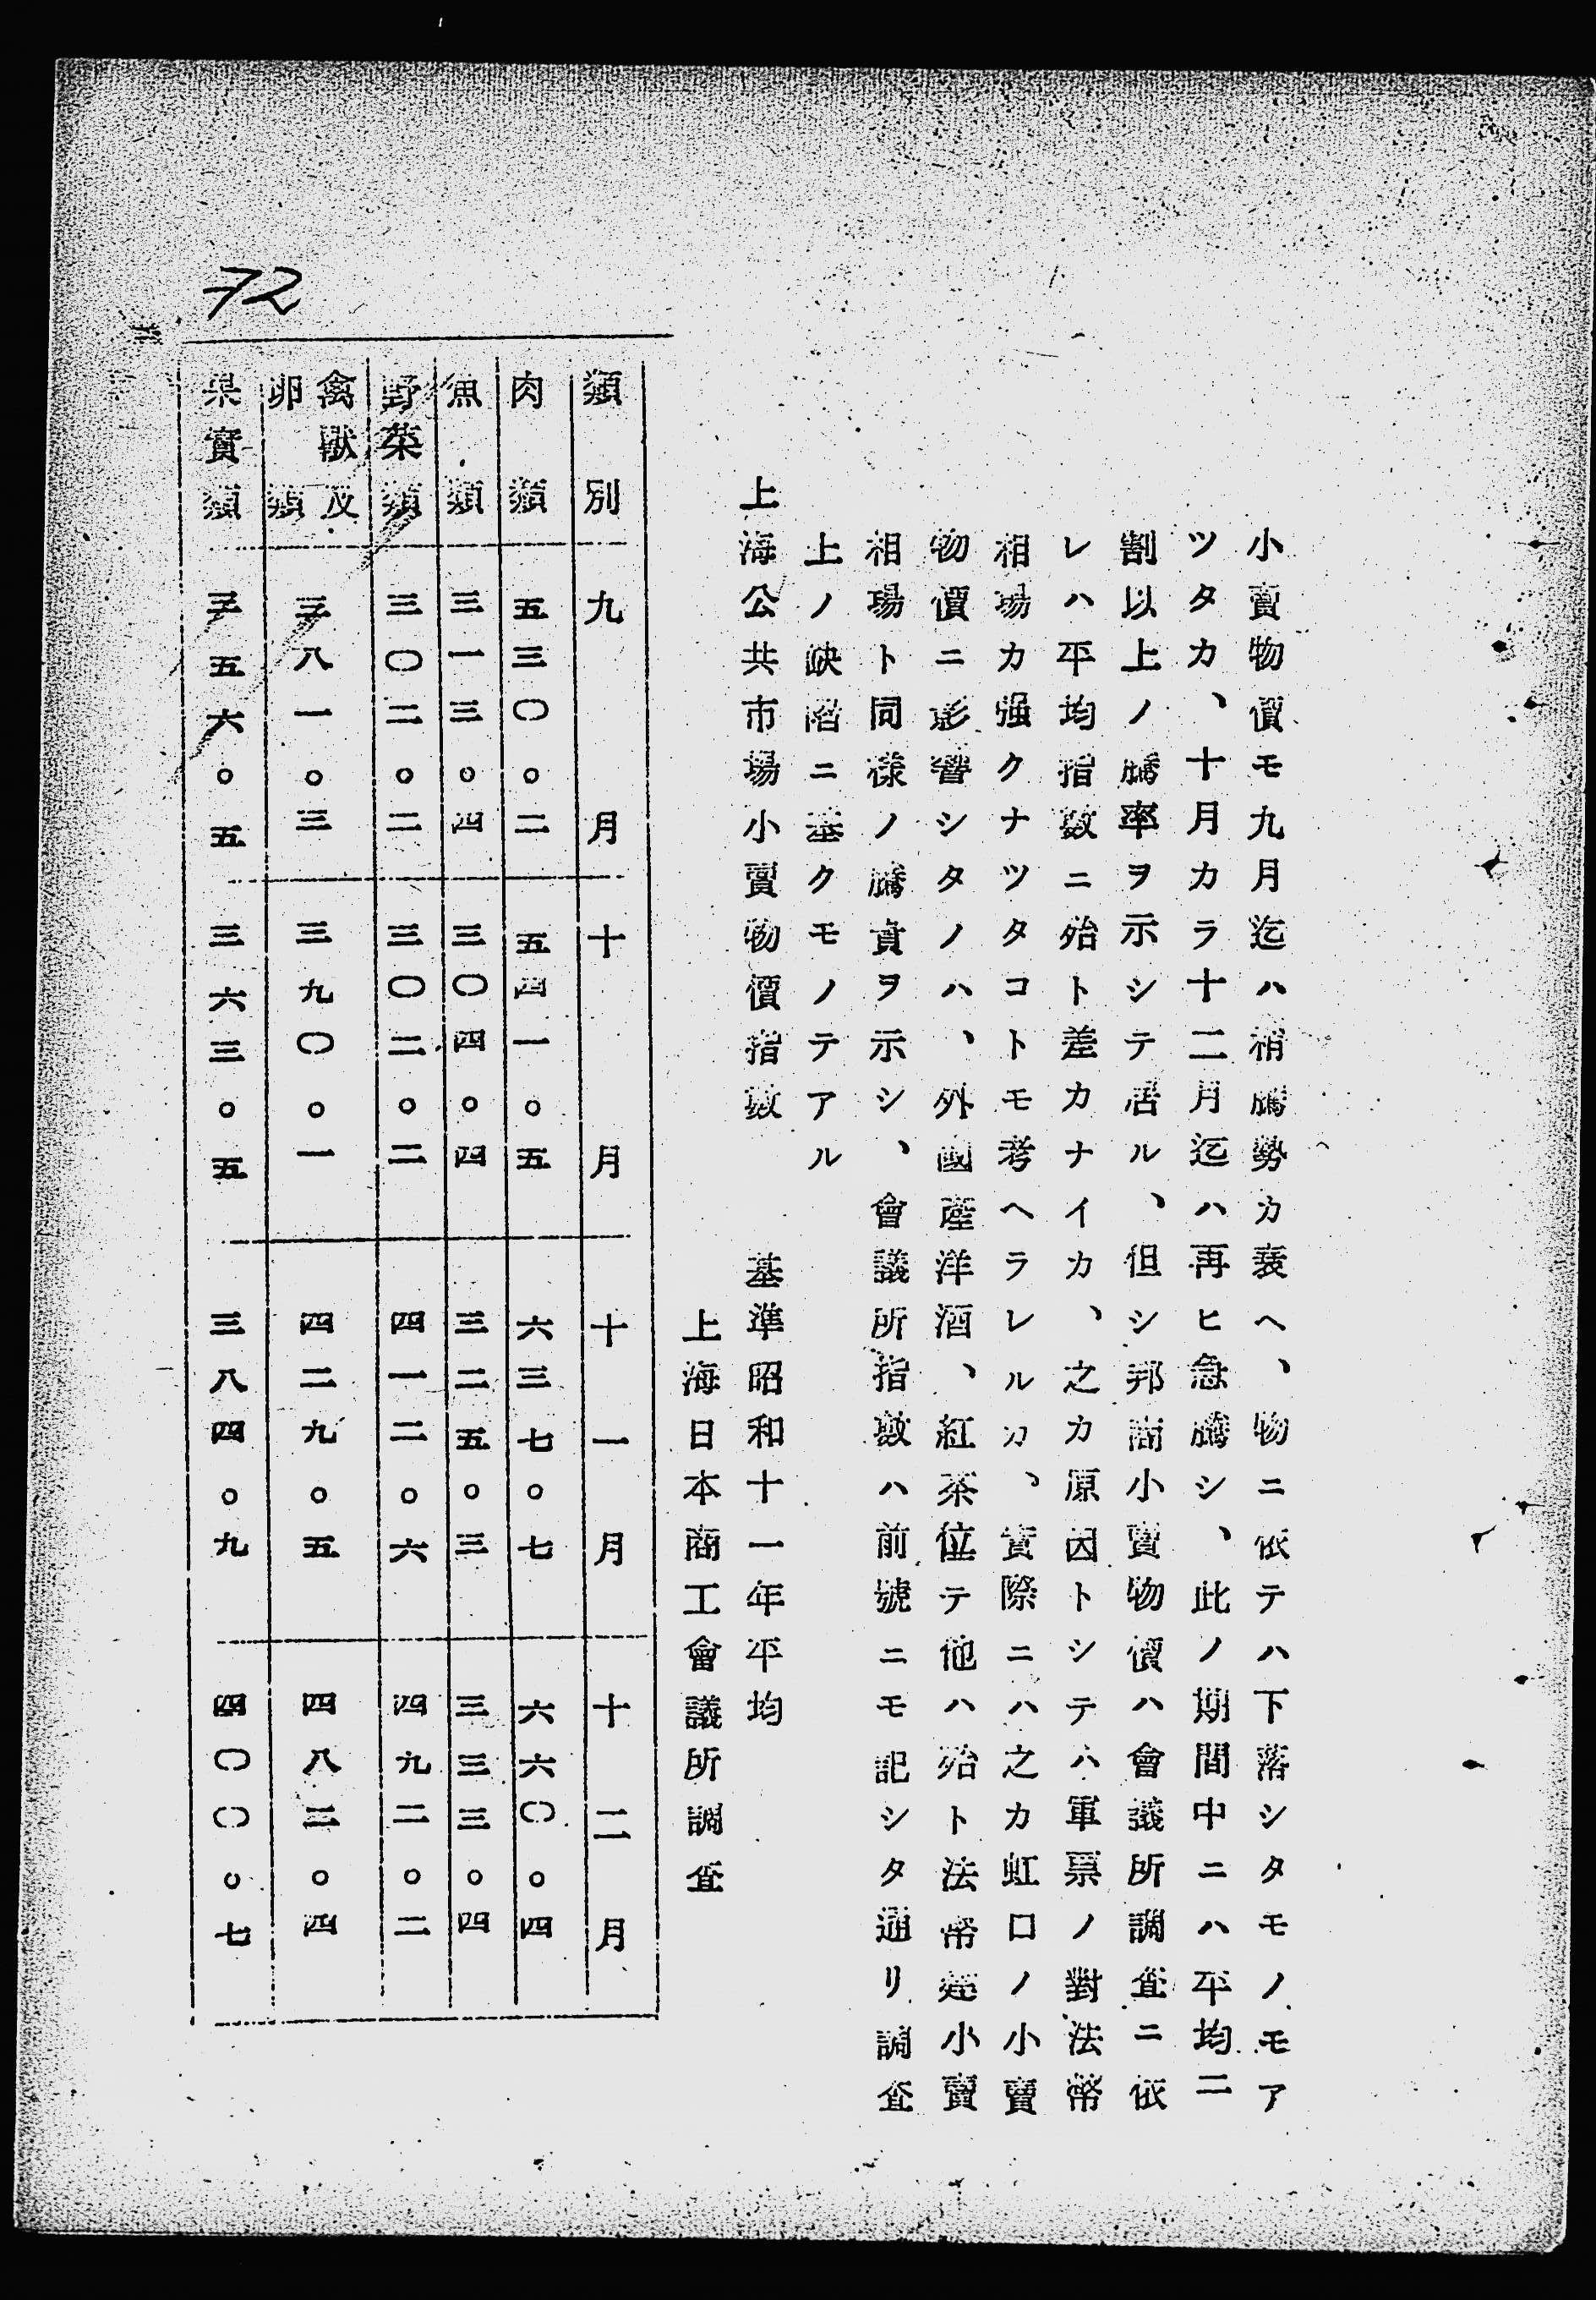 小賣物價モ九月迄ハ稍騰勢カ衰ヘ、物ニ依テハ下落シタモノモア
ツタカ、十月カラ十二月迄ハ再ヒ急騰シ、此ノ期間中ニハ平均二
割以上ノ騰率ヲ示シテ居ル、但シ邦商小賣物價ハ會議所調査ニ依
レハ平均指數ニ殆ト差カナイカ、之カ原因トシテハ軍票ノ對法幣
相場カ强クナツタコトモ考ヘラレルカ、實際ニハ之カ虹口ノ小賣
物價ニ影響シタノハ、外國產洋酒、紅茶位テ他ハ殆ト法幣建小賣
相場ト同樣ノ騰貴ヲ示シ、會議所指數ハ前號ニモ記シタ通リ調査
上ノ缺陷ニ基クモノテアル
上海公共市場小賣物價指數 基準昭和十一年平均
上海日本商工會議所調査
類別 九月 十月 十一月 十二月
肉類 五三〇。二 五四一。五 六三七。七 六六〇。四
魚類 三一三。四 三〇四。四 三二五。三 三三三。四
野菜類 三〇二。二 三〇二。二 四一二。六 四九二。二
禽獸及卵類 三八一。三 三九〇。一 四二九。五 四八三。四
果實類 三五六。五 三六三。五 三八四。九 四〇〇。七
72